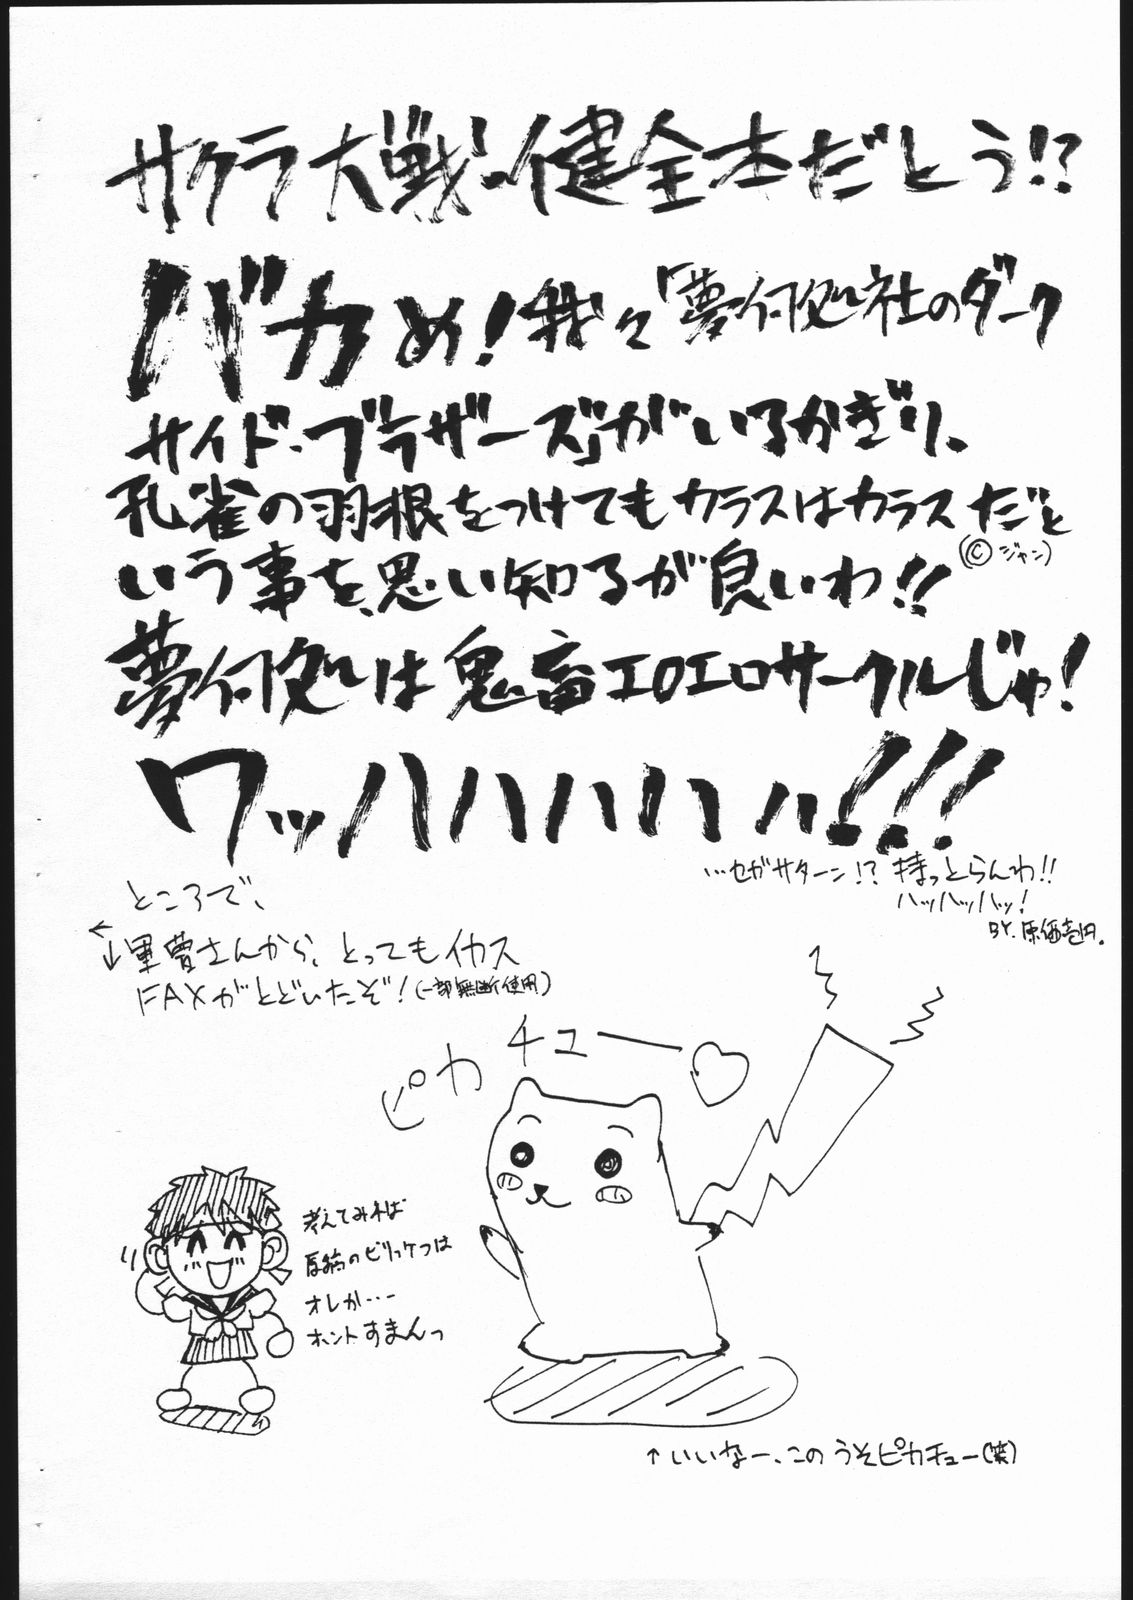 サクラ大戦・健全本だとう!?
バカめ!我々「夢何処社のダーク
サイド・ブラザーズ」がいるかぎり、
孔雀の羽根をつけてもカラスはカラスだと
(©ジャン)
いう事を、思い知るが良いわ!!
夢何処は鬼畜エロエロサークルじゃ!
ワッハハハハハ!!!
…セガサターン!?持っとらんわ!!
ハッハッハッ!
BY.原価壱円。
ところで、
←↓里曽さんから、とってもイカス
FAXがとどいたぞ!(一部無断使用)
ピカチュー♡
考えてみれば
原稿のビリッケツは
オレか…
ホントすまんっ
↑いいなー、このうそピカチュー(笑)